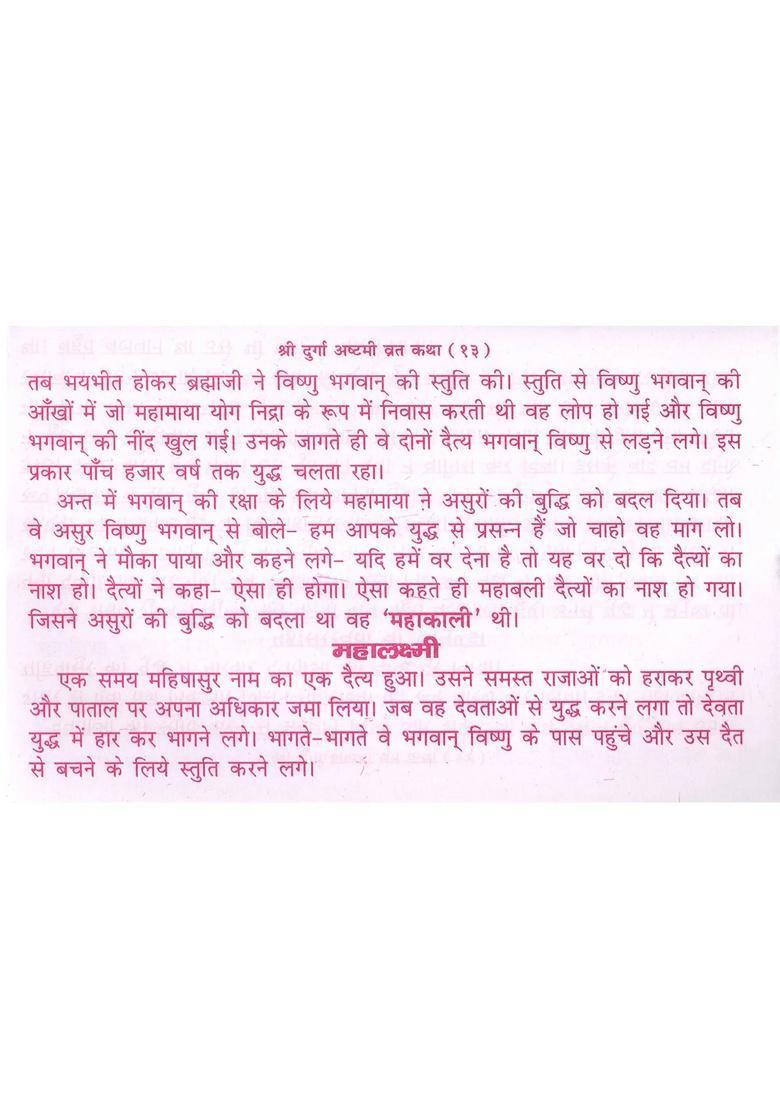 श्री दुर्गा अष्टमी व्रत कथा ( १३ )
तब भयभीत होकर ब्रह्माजी ने विष्णु भगवान् की स्तुति की। स्तुति से विष्णु भगवान् की
आँखों में जो महामाया योग निद्रा के रूप में निवास करती थी वह लोप हो गई और विष्णु
भगवान् की नींद खुल गई। उनके जागते ही वे दोनों दैत्य भगवान् विष्णु से लड़ने लगे। इस
प्रकार पाँच हजार वर्ष तक युद्ध चलता रहा।
अन्त में भगवान् की रक्षा के लिये महामाया ने असुरों की बुद्धि को बदल दिया। तब
वे असुर विष्णु भगवान् से बोले- हम आपके युद्ध से प्रसन्न हैं जो चाहो वह मांग लो।
भगवान् ने मौका पाया और कहने लगे- यदि हमें वर देना है तो यह वर दो कि दैत्यों का
नाश हो। दैत्यों ने कहा- ऐसा ही होगा। ऐसा कहते ही महाबली दैत्यों का नाश हो गया।
जिसने असुरों की बुद्धि को बदला था वह ‘महाकाली’ थी।
महालक्ष्मी
एक समय महिषासुर नाम का एक दैत्य हुआ। उसने समस्त राजाओं को हराकर पृथ्वी
और पाताल पर अपना अधिकार जमा लिया। जब वह देवताओं से युद्ध करने लगा तो देवता
युद्ध में हार कर भागने लगे। भागते-भागते वे भगवान् विष्णु के पास पहुंचे और उस दैत
से बचने के लिये स्तुति करने लगे।